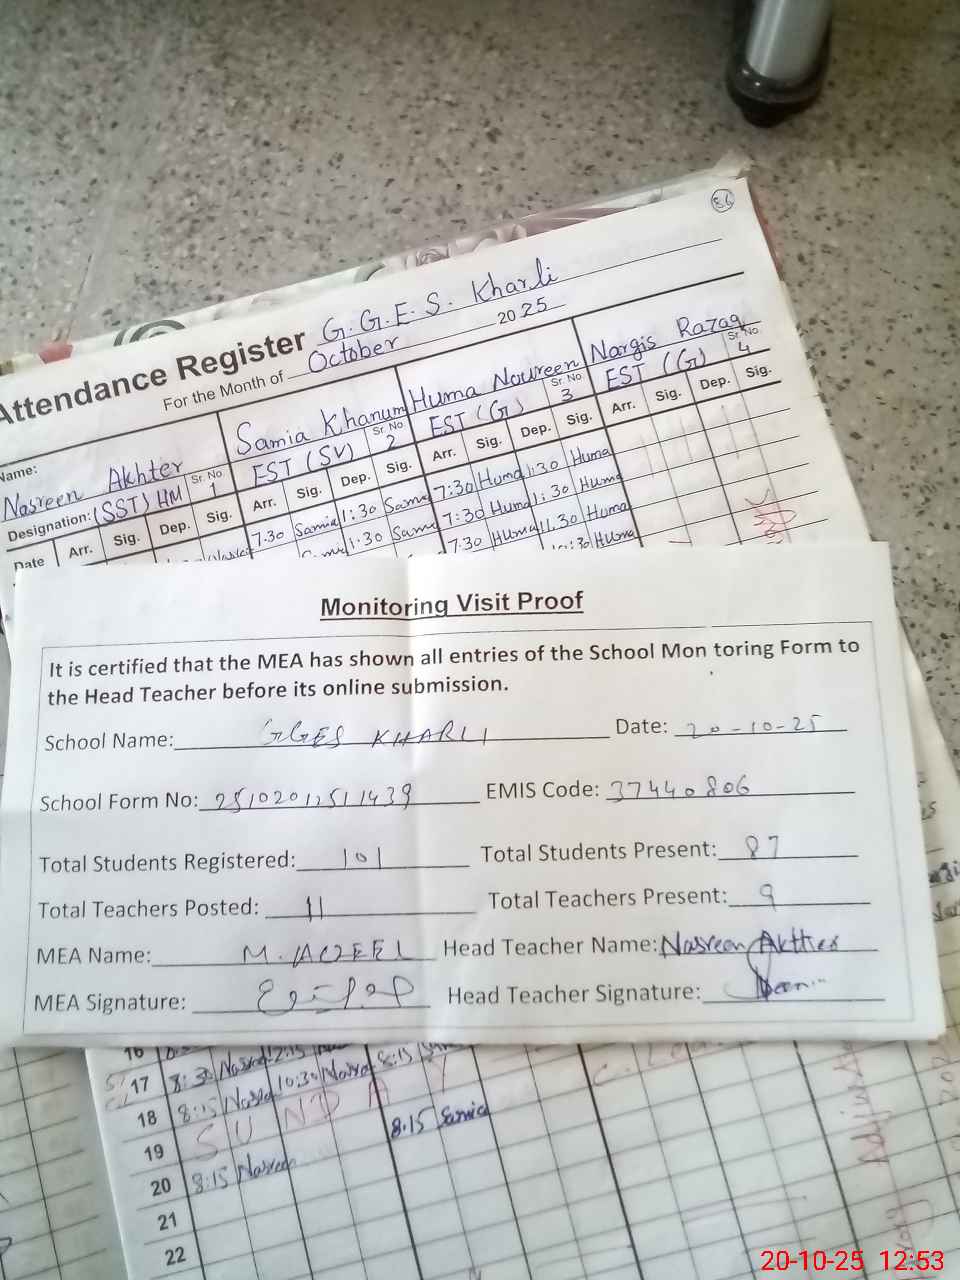 86
Attendance Register G.G.E.S. Kharli
For the Month of October 2025
Name: Nasreen Akhter Samia Khanum Huma Noureen Nargis Razaq
Designation: (SST) HM Sr. No. 1 EST (SV) Sr. No. 2 EST (G) Sr. No. 3 EST (G) Sr. No. 4
Date Arr. Sig. Dep. Sig. Arr. Sig. Dep. Sig. Arr. Sig. Dep. Sig. Arr. Sig. Dep. Sig.
7.30 Samia 1:30 Sama 7:30 Huma 1:30 Huma
1.30 Sam 7:30 Huma 1:30 Huma
7.30 Huma 11.30 Huma
Huma
Monitoring Visit Proof
It is certified that the MEA has shown all entries of the School Mon toring Form to
the Head Teacher before its online submission.
School Name: GGES KHARLI Date: 20-10-25
School Form No: 25102012511439 EMIS Code: 37440806
Total Students Registered: 101 Total Students Present: 87
Total Teachers Posted: 11 Total Teachers Present: 9
MEA Name: M. Head Teacher Name: Nasreen Akhter
MEA Signature: Head Teacher Signature:
16
17 8:30 12:15 8:15
18 8:15 10:30
19 SUNDAY
20 8:15 Nasreen 8.15 Samia
21
22
20-10-25 12:53